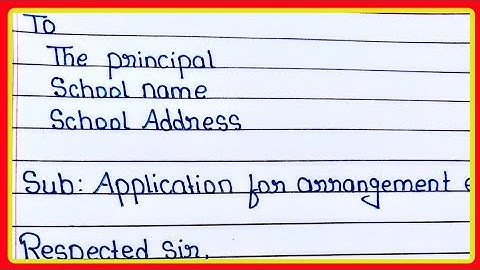 To
The principal
School name
School Address
Sub: Application for arrangement
Respected Sir,